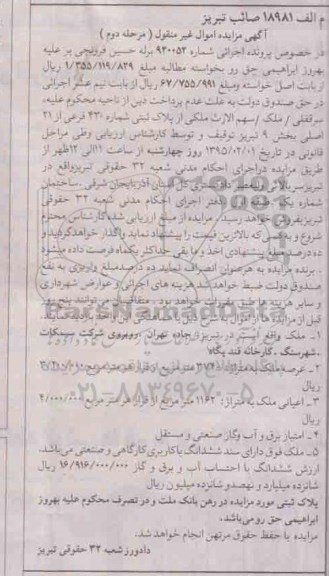 م الف ۱۸۹۸۱ صائب تبریز
آگهی مزایده اموال غیر منقول ( مرحله دوم )
در خصوص پرونده اجرائی شماره ۹۴۰۰۵۲ برله حسین قزوینچی بر علیه
بهروز ابراهیمی حق رو بخواسته مطالبه مبلغ ۱/۳۵۵/۱۱۹/۸۳۹ ریال
از بابت اصل خواسته ومبلغ ۶۷/۷۵۵/۹۹۱ ریال از بابت نیم عشر اجرائی
در حق صندوق دولت به علت عدم پرداخت دین از ناحیه محکوم علیه،
سرقفلی / ملک /سهم الارث ملکی از پلاک ثبتی شماره ۴۳۰ فرعی از ۲۱
اصلی بخش ۹ تبریز توقیف و توسط کارشناس ارزیابی وطی مراحل
قانونی در تاریخ ۱۳۹۵/۰۲/۰۱ روز چهارشنبه از ساعت ۱۱الی ۱۲ظهر از
طریق مزایده دراجرای احکام مدنی شعبه ۳۲ حقوقی تبریزواقع در
تبریزسربالائی ولیعصر دادگستری کل استان آذربایجان شرقی -ساختمان
شماره یک طبقه دفتر اجرای احکام مدنی شعبه ۳۲ حقوقی
تبریزبفروش خواهد رسید . مزایده از مبلغ ارزیابی شده کارشناس محترم
شروع و به کسی که بالاترین قیمت را پیشنهاد نماید واگذار خواهدگردید و
ده درصد مبلغ پیشنهادی اخذ و ما بقی حداکثر یکماه فرصت داده میشود
. برنده مزایده به هرعنوان انصراف نماید ده درصدمبلغ واریزی به نفع
صندوق دولت ضبط خواهد شد هزینه های اجرائی و عوارض شهرداری
و سایر هزینه ها طبق مقررات خواهد بود . متقاضیان می توانند پنج روز
قبل از مزایده
۱- ملک واقع است در تبریز جاده تهران روبروی شرکت سیمکات
،شهرسنگ ، کارخانه قند پگاه
۲- عرصه ملک به متراژ متر مربع از قرار هر متر مربع
ریال
۳- اعیانی ملک به متراژ: ۱۱۶۲ متر مربع از قرار هر متر مربع ۴/۰۰۰/۰۰۰
ریال
۴- امتیاز برق و آب وگاز صنعتی و مستقل
۵- ملک فوق دارای سند ششدانگ باکاربری کارگاهی و صنعتی می‌باشد.
ارزش ششدانگ با احتساب آب و برق و گاز ۱۶/۹۱۶/۰۰۰/۰۰۰ ریال
شانزده میلیارد و نهصدو شانزده میلیون ریال
پلاک ثبتی مورد مزایده در رهن بانک ملت و در تصرف محکوم علیه بهروز
ابراهیمی حق رو می‌باشد.
مزایده با حفظ حقوق مرتهن انجام خواهد شد.
دادورز شعبه ۳۲ حقوقی تبریز
۰۲۱-۸۸۳۴۹۶۷۰-۵